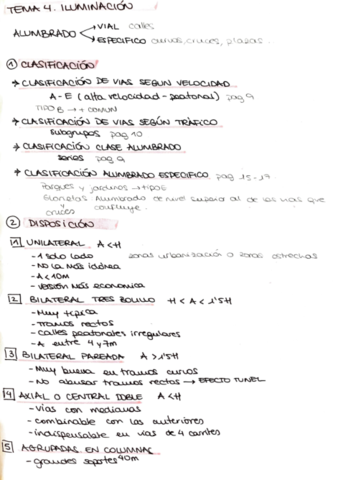 TEMA 4. ILUMINACIÓN
ALUMBRADO → VIAL calles
→ ESPECIFICO curvas, cruces, plazas.
① CLASIFICACIÓN
→ CLASIFICACIÓN DE VIAS SEGUN VELOCIDAD
A - E (alta velocidad - peatonal) pag 9
TIPO B → + COMUN
→ CLASIFICACIÓN DE VIAS SEGÚN TRÁFICO
Subgrupos pag 10
→ CLASIFICACIÓN CLASE ALUMBRADO
series pag 9
→ CLASIFICACIÓN ALUMBRADO ESPECIFICO pag 15-17
Parques y jardines → tipos
Glorietas Alumbrado de nivel superior al de las vias que
y cruces confluye.
② DISPOSICIÓN
1 UNILATERAL A < H
- 1 solo lado zonas urbanización o zonas estrechas
- NO LA MÁS idónea
- A < 10m
- versión MÁS economica
2 BILATERAL TRES BOLILLO H < A < 1'5H
- Muy típica
- Tramos rectos
- Calles peatonales irregulares
- A entre 4 y 7m
3 BILATERAL PAREADA A > 1'5H
- Muy buena en tramos curvos
- No abusar tramos rectos → EFECTO TUNEL
4 AXIAL O CENTRAL DOBLE A < H
- vías con medianas
- combinable con las anteriores
- indispensable en vias de 4 carriles
5 AGRUPADAS EN COLUMNAS
- grandes soportes 40m